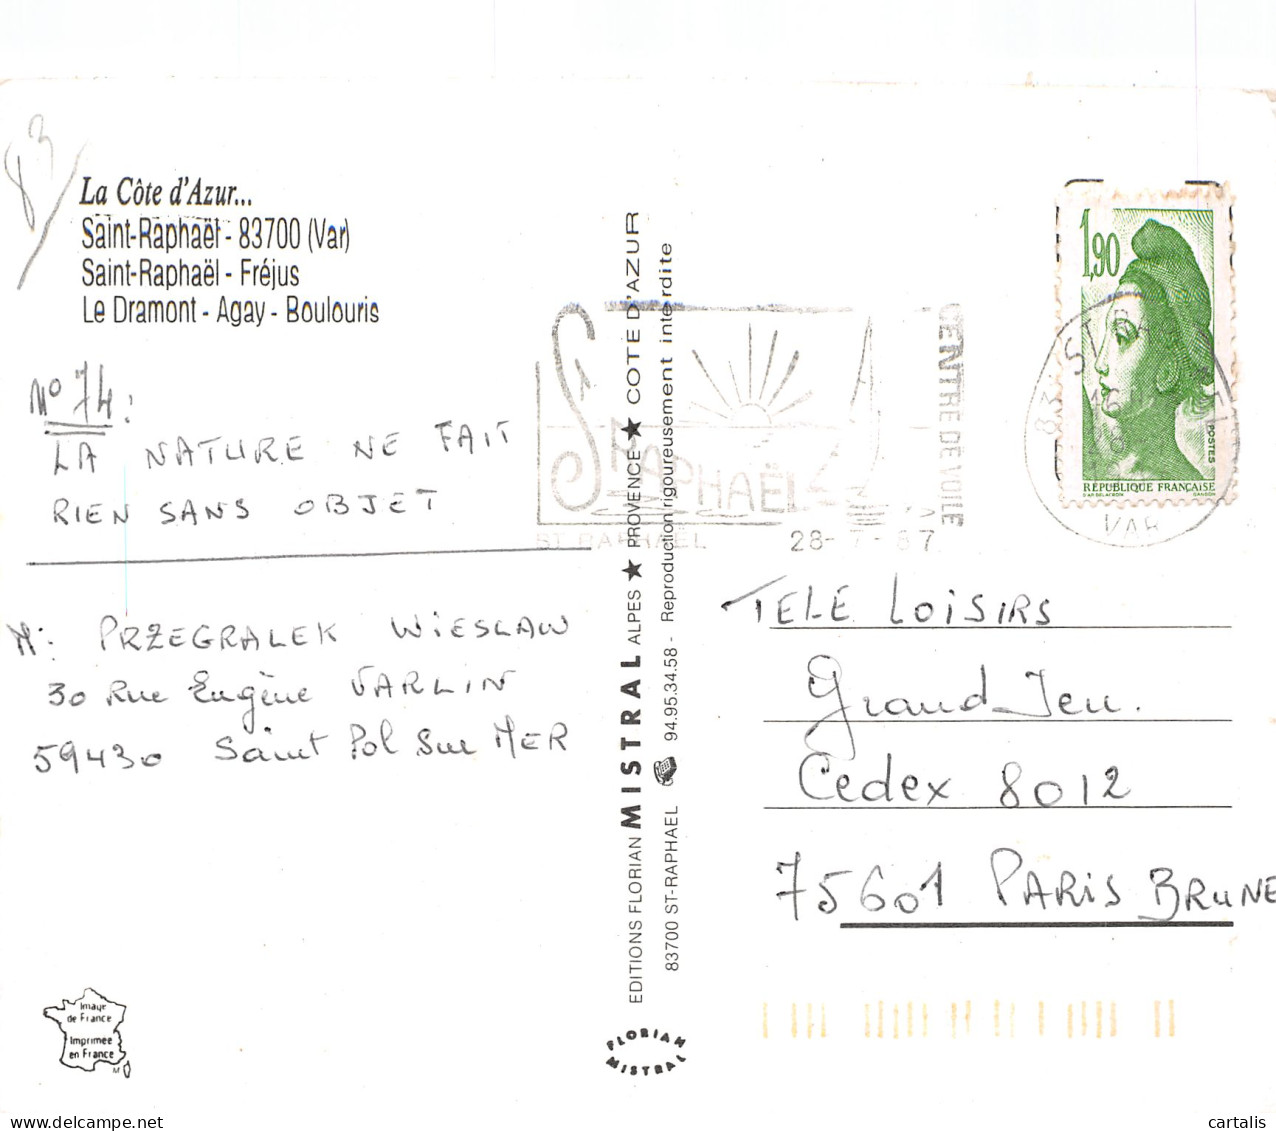 83
La Côte d'Azur...
Saint-Raphaël - 83700 (Var)
Saint-Raphaël - Fréjus
Le Dramont - Agay - Boulouris
N° 74 :
LA NATURE NE FAIT
RIEN SANS OBJET
M: PRZEGRALEK WIESLAW
30 Rue Eugène VARLIN
59430 Saint Pol Sur MER
Image
de France
Imprimée
en France
EDITIONS FLORIAN MISTRAL ALPES ★ PROVENCE ★ COTE D'AZUR
83700 ST-RAPHAEL 94.95.34.58 - Reproduction rigoureusement interdite
FLORIAN
MISTRAL
ST RAPHAËL
CENTRE DE VOILE
ST RAPHAËL 28-7-87
83 ST RAPHAEL
VAR
1,90
POSTES
REPUBLIQUE FRANÇAISE
D'AP. DELACROIX GANDON
TELE LOISIRS
Grand Jeu.
Cedex 8012
75601 PARIS BRUNE
cartalis